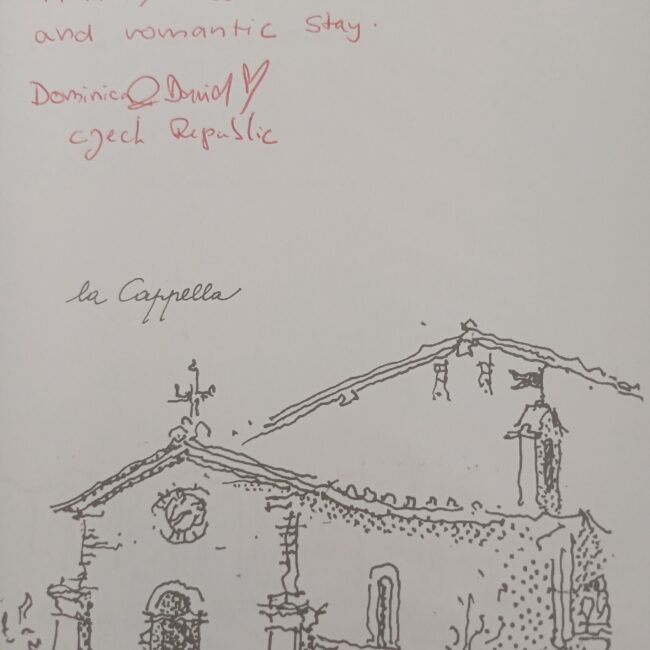 and romantic stay.
Dominica & David
czech Republic
la Cappella